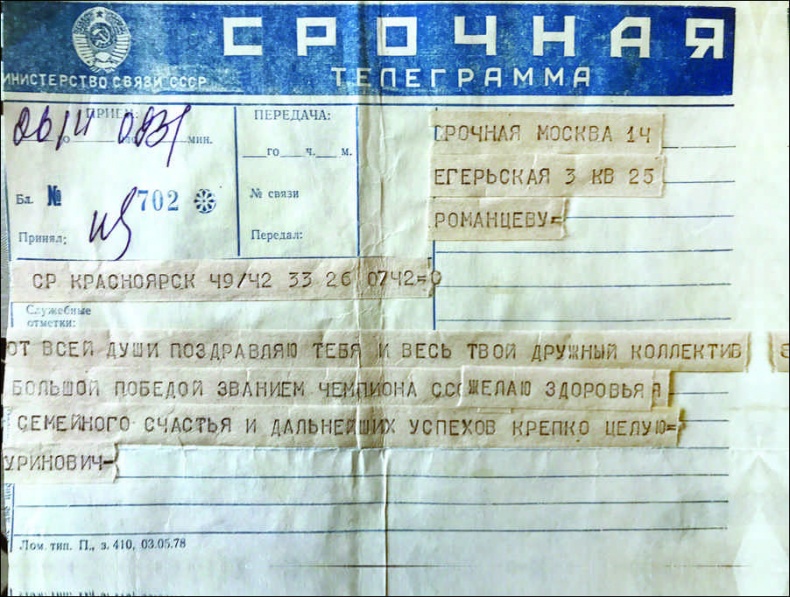 СРОЧНАЯ
МИНИСТЕРСТВО СВЯЗИ СССР
ТЕЛЕГРАММА
ПРИЕМ:
го мин.
Бл. № 702
Принял:
ПЕРЕДАЧА:
го ч. м.
№ связи
Передал:
СРОЧНАЯ МОСКВА 14
ЕГЕРЬСКАЯ 3 КВ 25
РОМАНЦЕВУ=
СР КРАСНОЯРСК 49/42 33 26 0742=
Служебные
отметки:
ОТ ВСЕЙ ДУШИ ПОЗДРАВЛЯЮ ТЕБЯ И ВЕСЬ ТВОЙ ДРУЖНЫЙ КОЛЛЕКТИВ
БОЛЬШОЙ ПОБЕДОЙ ЗВАНИЕМ ЧЕМПИОНА ССС ЖЕЛАЮ ЗДОРОВЬЯ
СЕМЕЙНОГО СЧАСТЬЯ И ДАЛЬНЕЙШИХ УСПЕХОВ КРЕПКО ЦЕЛУЮ=
УРИНОВИЧ-
Лом. тип. П., з. 410, 03.05.78